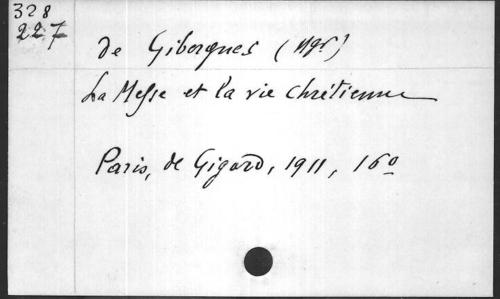 328
227
de Gibergues (Mgr)
La Messe et la vie chrétienne
Paris, de Gigord, 1911, 16o